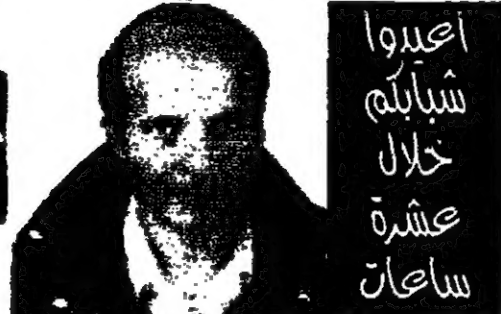 أعيدوا
شبابكم
خلال
عشرة
ساعات